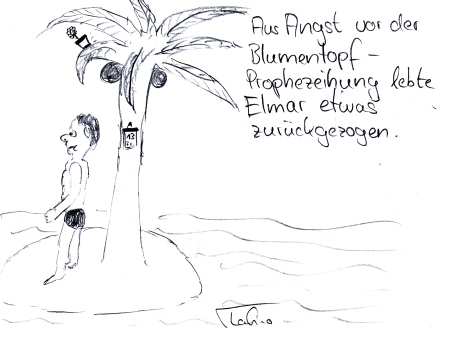 Aus Angst vor der
Blumentopf-
Prophezeihung lebte
Elmar etwas
zurückgezogen.
13